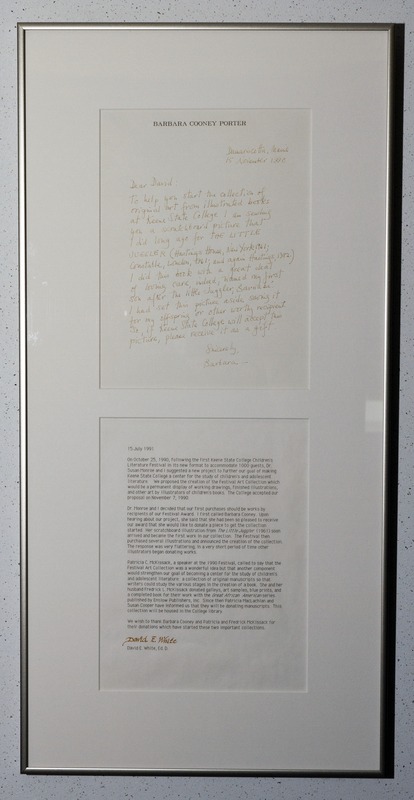 BARBARA COONEY PORTER
Damariscotta, Maine
15 November 1990
Dear David,
To help you start the collection of
original art from illustrated books
at Keene State College I am sending
you a scratchboard picture that
I did long ago for THE LITTLE
JUGGLER (Hastings House, New York, 1961;
Constable, London, 1961; and again Hastings, 1982.)
I did this book with a great deal
of loving care, indeed, named my first
son after the little juggler, Barnaby.
I had set this picture aside, saving it
for my offspring or other worthy recipient
So, if Keene State College will accept this
picture, please receive it as a gift.
Sincerely,
Barbara
15 July 1991
On October 25, 1990, following the first Keene State College Children's
Literature Festival in its new format to accommodate 1000 guests, Dr.
Susan Moore and I suggested a new project to further our goal of making
Keene State College a center for the study of children's and adolescent
literature. We proposed the creation of the Festival Art Collection which
would be a permanent display of working drawings, finished illustrations,
and other art by illustrators of children's books. The College accepted our
proposal on November 7, 1990.
Dr. Moore and I decided that our first purchases should be works by
recipients of our Festival Award. I first called Barbara Cooney. Upon
hearing about our project, she said that she had been so pleased to receive
our award that she would like to donate a piece to get the collection
started. Her scratchboard illustration from The Little Juggler (1961) soon
arrived and became the first work in our collection. The Festival then
purchased several illustrations and announced the creation of the collection.
The response was very flattering; in a very short period of time other
illustrators began donating works.
Patricia C. McKissack, a speaker at the 1990 Festival, called to say that the
Festival Art Collection was a wonderful idea but that another component
would strengthen our goal of becoming a center for the study of children's
and adolescent literature: a collection of original manuscripts so that
writers could study the various stages in the creation of a book. She and her
husband Fredrick L. McKissack donated galleys, art samples, final prints, and
a completed book for their work with the Great African Americans series
published by Enslow Publishers, Inc. Since then Patricia MacLachlan and
Susan Cooper have informed us that they will be donating manuscripts. This
collection will be housed in the College library.
We wish to thank Barbara Cooney and Patricia and Fredrick McKissack for
their donations which have started these two important collections.
David E. White
David E. White, Ed.D.